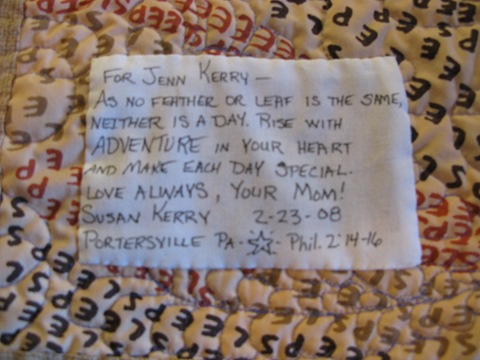 FOR JENN KERRY —
AS NO FEATHER OR LEAF IS THE SAME,
NEITHER IS A DAY. RISE WITH
ADVENTURE IN YOUR HEART
AND MAKE EACH DAY SPECIAL.
LOVE ALWAYS, YOUR MOM!
SUSAN KERRY 2-23-08
PORTERSVILLE PA - ☆ - Phil. 2:14-16
SLEEP